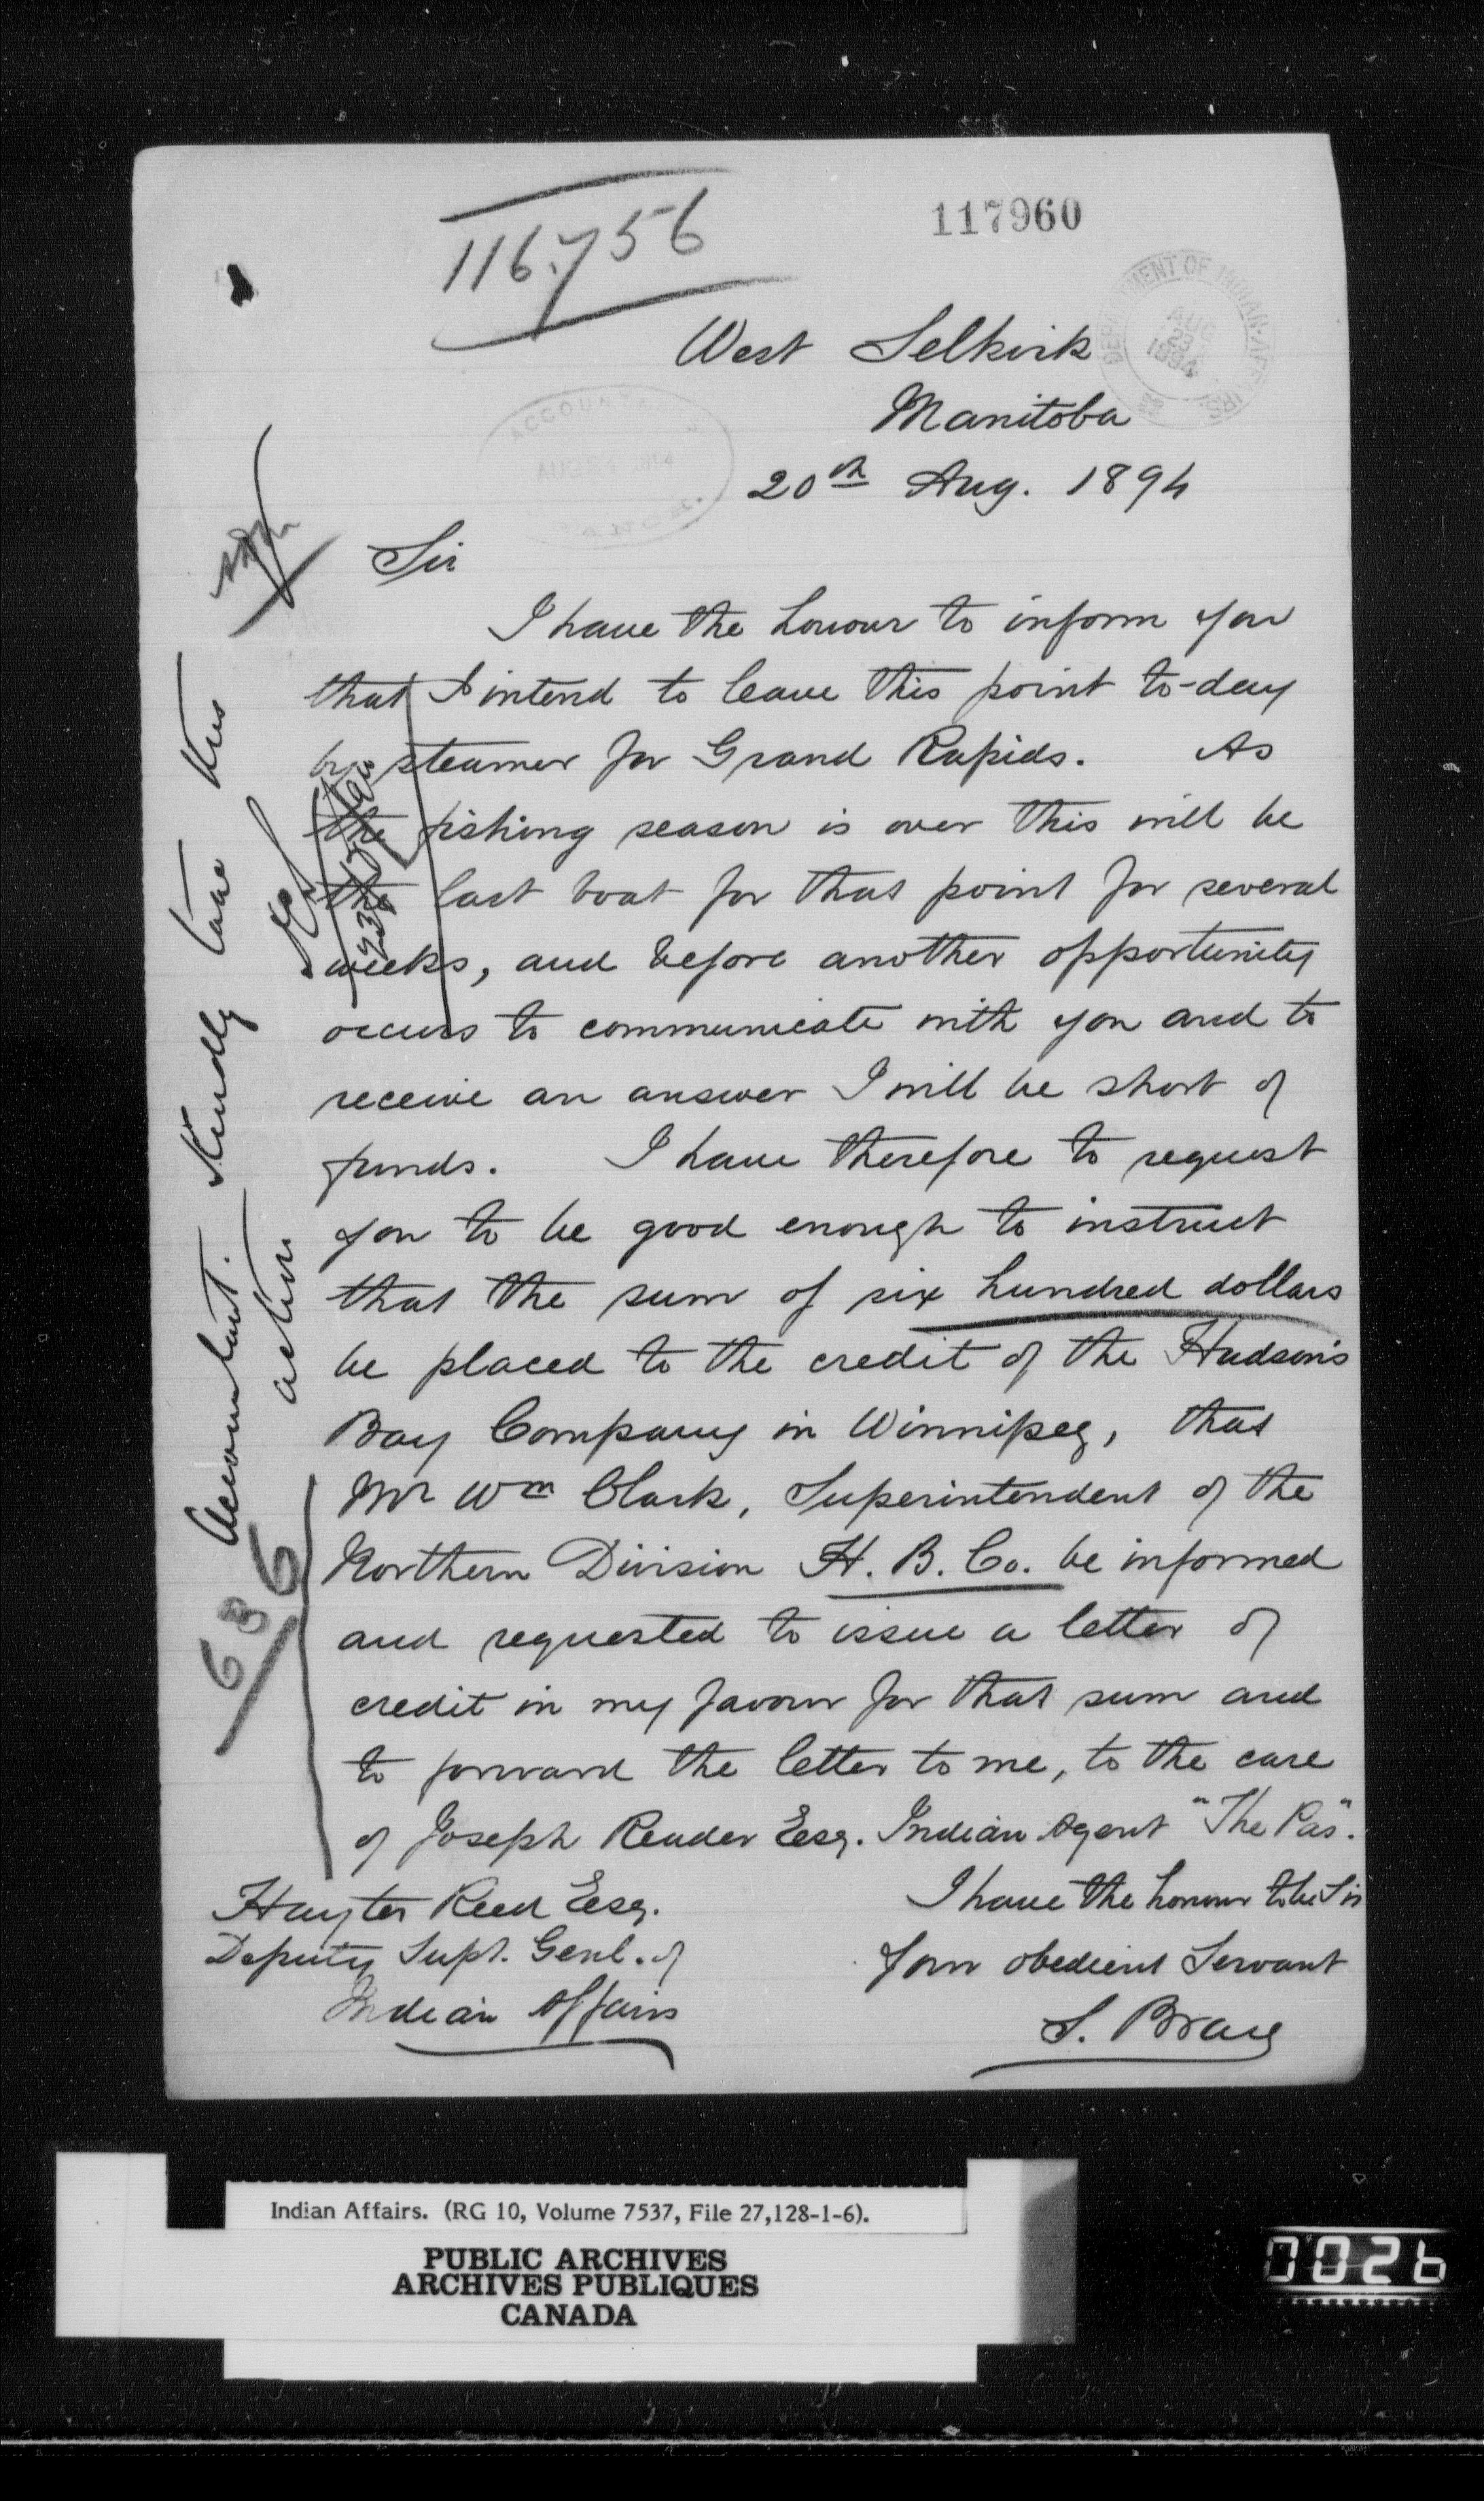 116.756
117960
DEPARTMENT OF INDIAN AFFAIRS
AUG 23 1894
ACCOUNT
West Selkirk
Manitoba
20th Aug. 1894
Sir
I have the honour to inform you
that I intend to leave this point to-day
by steamer for Grand Rapids. As
the fishing season is over this will be
the last boat for that point for several
weeks, and before another opportunity
occurs to communicate with you and to
receive an answer I will be short of
funds. I have therefore to request
you to be good enough to instruct
that the sum of six hundred dollars
be placed to the credit of the Hudson's
Bay Company in Winnipeg, that
Mr Wm Clark, Superintendent of the
Northern Division H. B. Co. be informed
and requested to issue a letter of
credit in my favour for that sum and
to forward the letter to me, to the care
of Joseph Reader Esq. Indian Agent "The Pas".
I have the honour to be Sir
Your obedient Servant
S. Bray
Hayter Reed Esq.
Deputy Supt. Genl. of
Indian Affairs
Accountant. Kindly take this
action
636
Indian Affairs. (RG 10, Volume 7537, File 27,128-1-6).
PUBLIC ARCHIVES
ARCHIVES PUBLIQUES
CANADA
0026